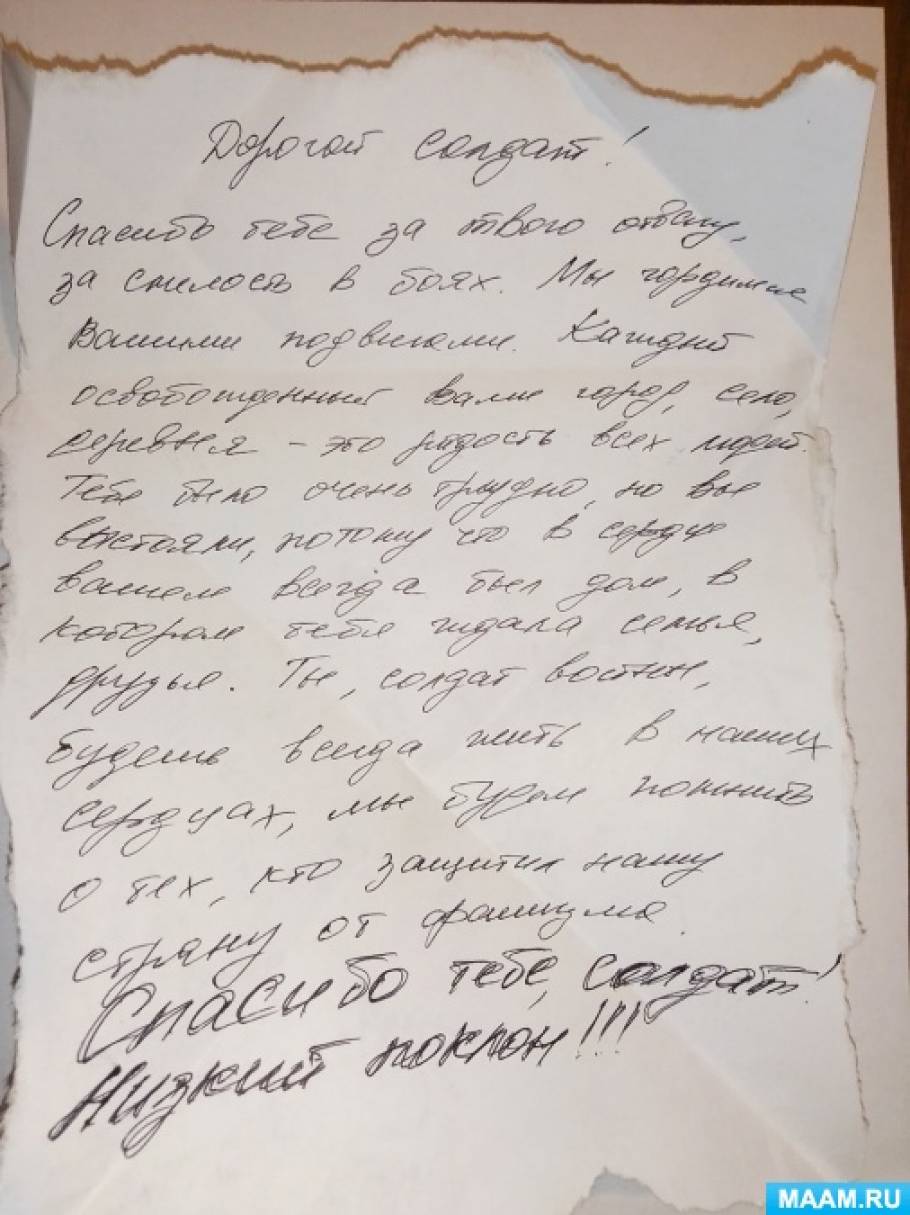 Дорогой солдат!
Спасибо тебе за твою отвагу,
за смелость в боях. Мы гордимся
Вашими подвигами. Каждый
освобожденный вами город, село,
деревня – это радость всех людей.
Тебе было очень трудно, но вы
выстояли, потому что в сердце
вашем всегда был дом, в
котором тебя ждала семья,
друзья. Ты, солдат воин,
будешь всегда жить в наших
сердцах, мы будем помнить
о тех, кто защитил нашу
страну от фашизма.
Спасибо тебе, солдат!
Низкий поклон!!!
MAAM.RU